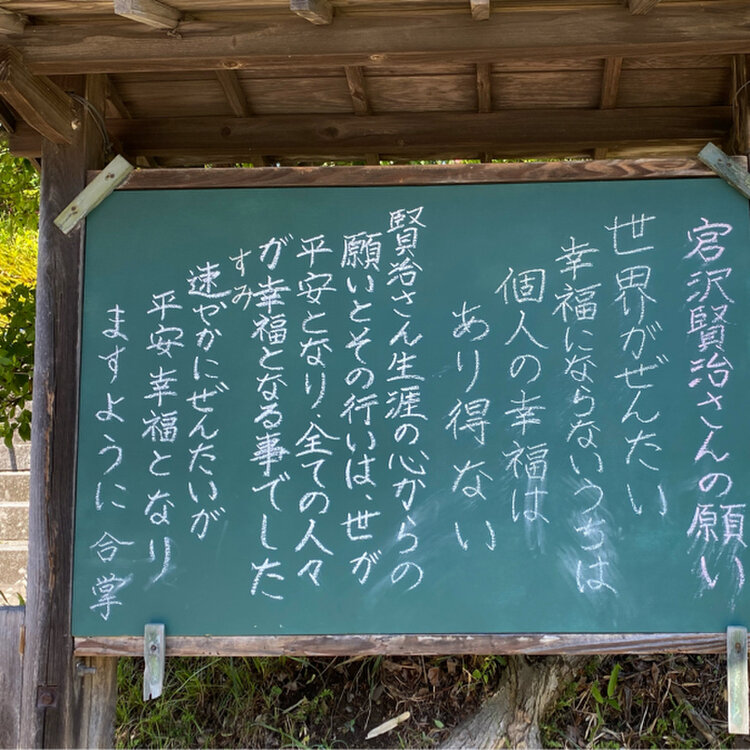 宮沢賢治さんの願い
世界がぜんたい
幸福にならないうちは
個人の幸福は
あり得ない
賢治さん生涯の心からの
願いとその行いは、世が
平安となり、全ての人々
が幸福となる事でした
すみ
速やかにぜんたいが
平安幸福となり
ますように 合掌